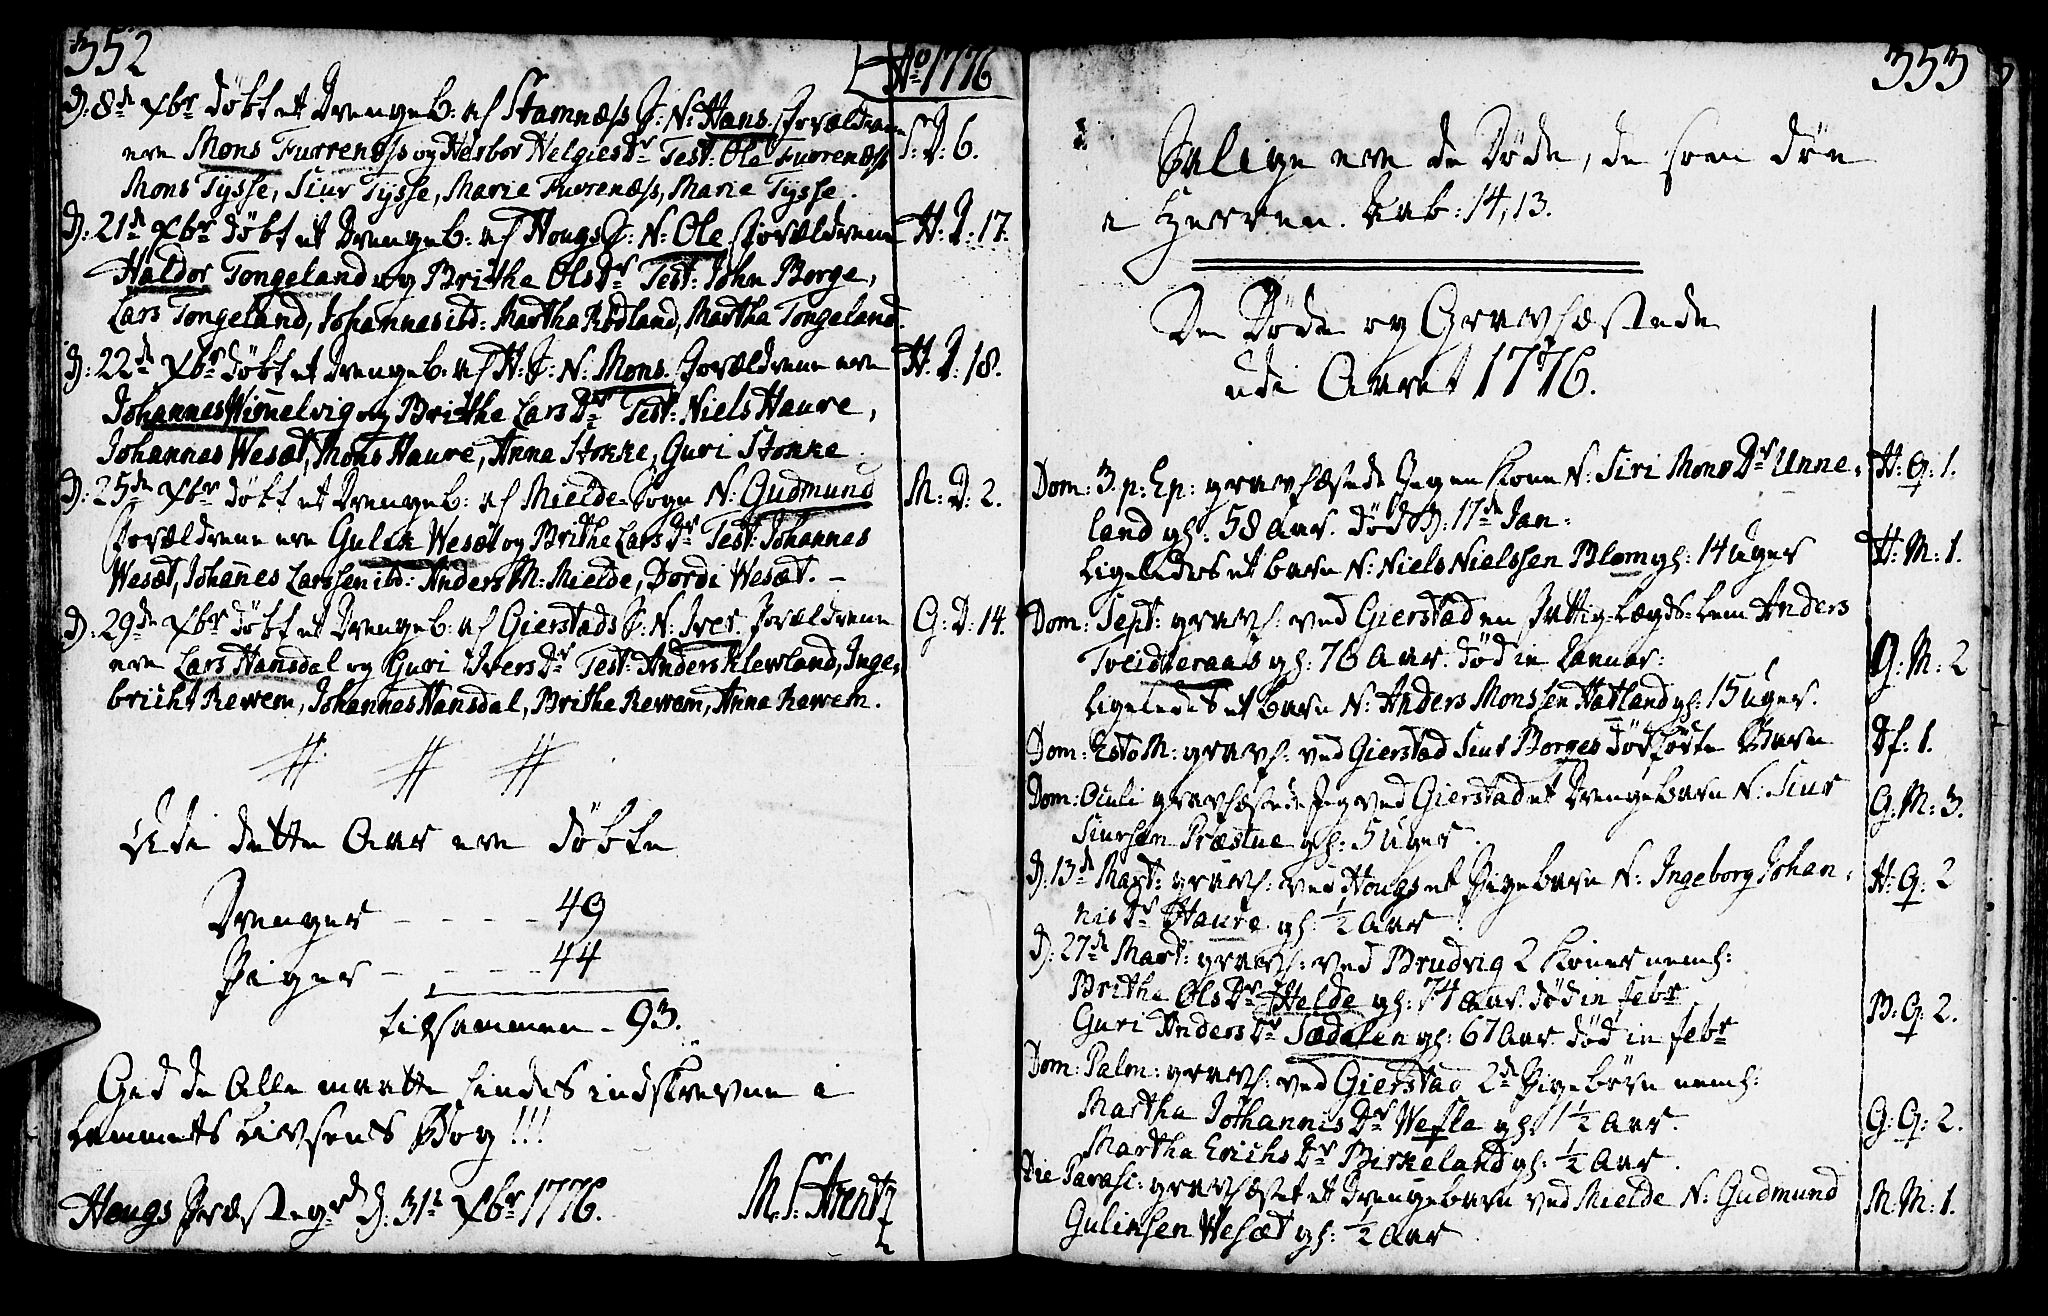 352
Ao 1776
D: 8de Xbr døbt et Drengeb: af Stamnæss S: N: Hans. Forældrene S: D: 6.
ere Mons Furrenæss og Herbor Helgies Dr Test: Ole Furrenæss
Mons Tysse, Siur Tysse, Marie Furrenæss, Marie Tysse.
D: 21de Xbr døbt et Drengeb: af Hougs S: N: Ole Forældrene H: D: 17.
Haldor Tongeland og Brithe Ols Dr Test: John Borge,
Lars Tongeland, Johannes ibd: Martha Rødland, Martha Tongeland.
D: 22de Xbr døbt et Drengeb: af H: S: N: Mons. Forældrene ere H: D: 18.
Johannes Wimelvig og Brithe Lars Dr Test: Niels Haure,
Johannes Wesæt, Mons Haure, Anna Stokke, Guri Stokke
D: 25de Xbr døbt et Drengeb: af Mielde Sogn N: Gudmund M: D: 2.
Forældrene ere Gulik Wesæt og Brithe Lars Dr Test: Johannes
Wesæt, Johanes Larssen ibd: Anders M: Mielde, Dordi Wesæt. –
D: 29de Xbr døbt et Drengeb: af Gierstads S: N: Iver. Forældrene G: D: 14.
ere Lars Hansdal og Guri Ivers Dr Test: Anders Klevland, Inge,
bricht Rewem, Johannes Hansdal, Brithe Rewem, Anna Rewem.
# # #
Udi dette Aar ere døbte
Drenger - - - - 49
Piger - - - - 44
tilsammen - 93.
Gid de Alle maatte findes indskrevne i
Lammets Livsens Bog!!!
Hougs Præstegrd D: 31te Xbr 1776. M. S. Arentz
353
Salige ere de Døde, de som døe
i Herren. Aab: 14, 13.
De Døde og Gravfæstede
udi Aaret 1776.
Dom: 3. p: Ep: gravfæstede Jegen Kone N: Siri Mons Dr Unne, H: Q: 1.
land gl: 58 Aar. død D: 17de Jan:
Ligeledes et barn N: Niels Nielssen Blom gl: 14 Uger H: M: 1.
Dom: Sept: gravf: ved Gierstad en Fattig-Lægds-Lem Anders
Treidteraas gl: 76 Aar. død in Januar: G: M: 2
Ligeledes et barn N: Anders Monssen Hatland gl: 15 Uger.
Dom: Esto M: gravf: ved Gierstad Siur Borges dødfødte Barn Df: 1.
Dom: Oculi gravfæstede Jeg ved Gierstad et Drengebarn N: Siur G: M: 3.
Siursen Præstue gl: 5 Uger.
D: 13de Mart: gravf: ved Hougs et Pigebarn N: Ingeborg Johan, H: Q: 2
nis Dr Haure gl: ½ Aar
D: 27de Mart: gravf: ved Brudvig 2 Koner neml:
Brithe Ols Dr Helde gl: 74 Aar. død in Febr
Guri Anders Dr Sædalen gl: 67 Aar. død in Febr B: Q: 2.
Dom: Palm: gravf: ved Gierstad 2de Pigebørn neml:
Martha Johannis Dr Wefle gl: 1½ Aar. G: Q: 2.
Martha Erichs Dr Birkeland gl: ½ Aar.
Die Parasc: gravfæstet et Drengebarn ved Mielde N: Gudmund M: M: 1.
Guliksen Wesæt gl: ½ Aar